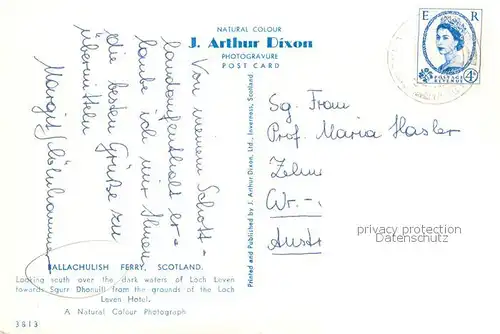 NATURAL COLOUR
J. Arthur Dixon
PHOTOGRAVURE
POST CARD
E R
POSTAGE
REVENUE
4d
Von meinem Schott-
landaufenthalt er-
laube ich mir Ihnen
die besten Grüße zu
übermitteln
Margit
Sg. Frau
Prof. Maria Hasler
Wr.-
Austr
Printed and Published by J. Arthur Dixon, Ltd., Inverness, Scotland.
privacy protection
Datenschutz
BALLACHULISH FERRY, SCOTLAND.
Looking south over the dark waters of Loch Leven
towards Sgurr Dhonuill from the grounds of the Loch
Leven Hotel.
A Natural Colour Photograph
3613